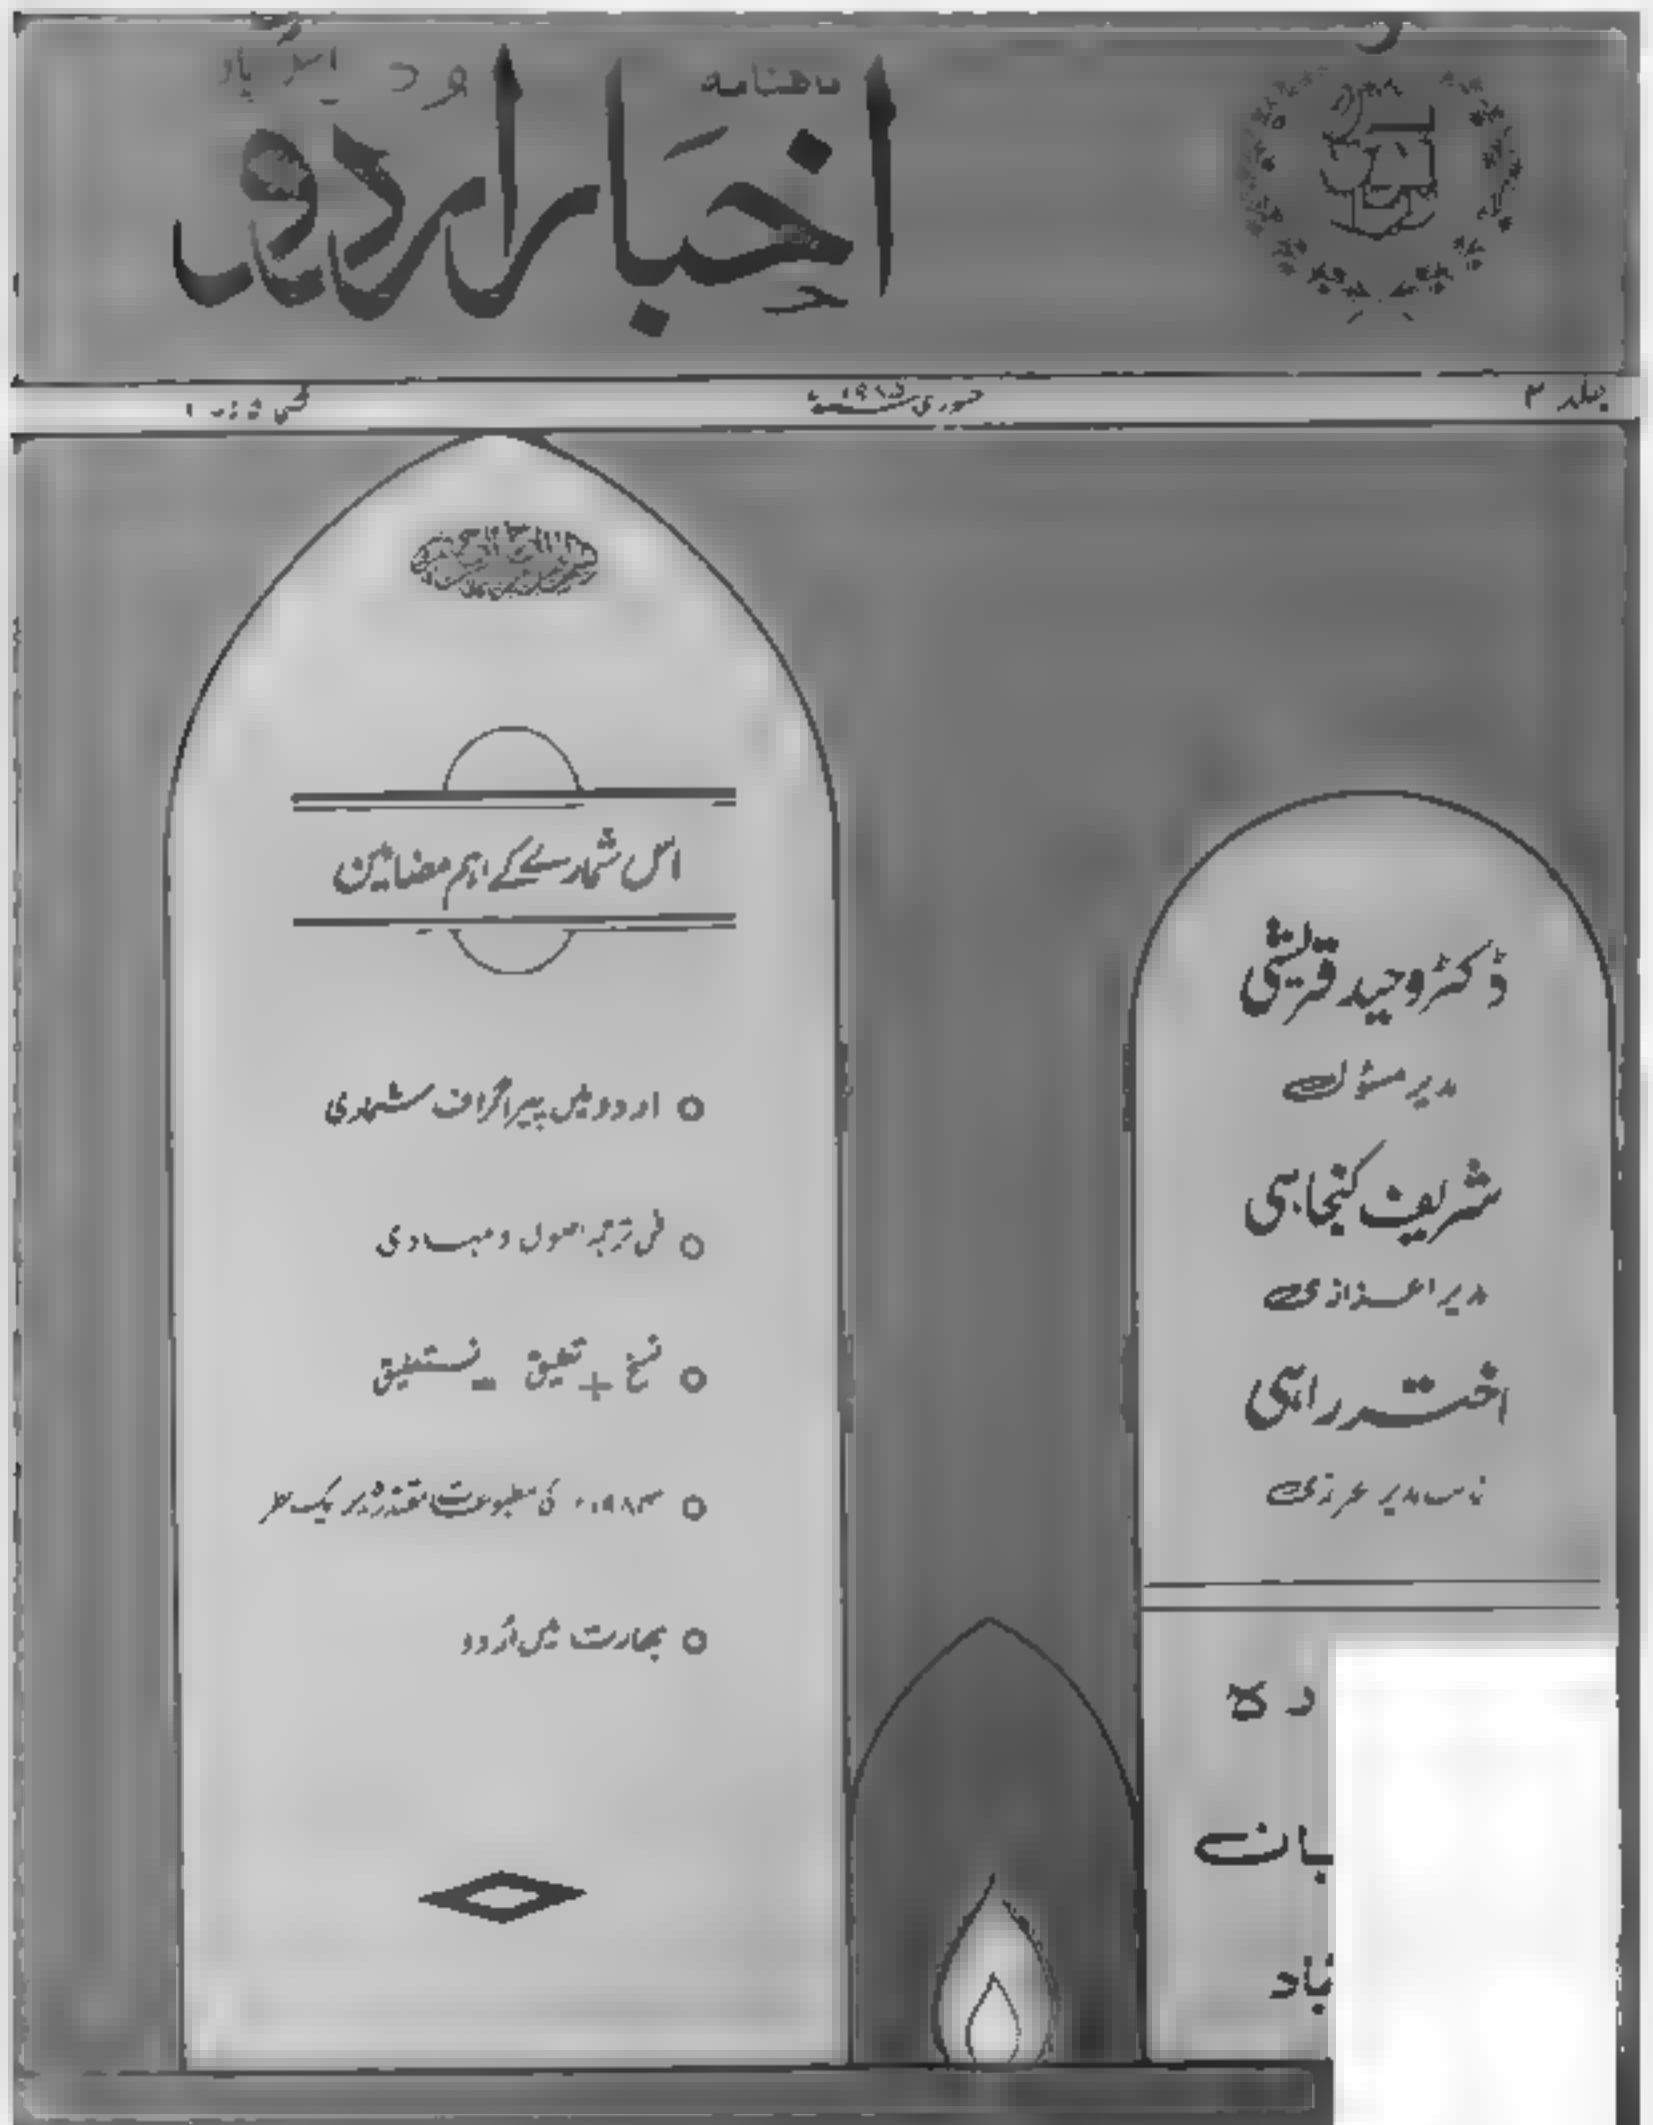 ماهنامه
اخبار اردو
جلد ۲
جنوری ۱۹۸۵ء
اس شمارے کے اہم مضامین
اردو میں پیراگراف شماری
فن ترجمہ اصول و مبادی
نسخ + تعلیق = نستعلیق
۱۹۸۴ء کی مطبوعات مقتدرہ پر ایک نظر
بھارت میں اُردو
ڈاکٹر وحید قریشی
مدیر مسئول
شریف کنجاہی
مدیر اعزازی
اختر راہی
نائب مدیر اعزازی